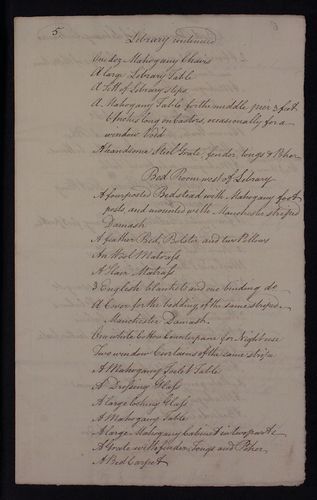 5.
Library continued
One doz Mahogany Chairs
A large Library Table
A Sett of Library steps
A Mahogany Table for the middle pier 3 feet
6 Inches long on Castors, occasionally for a
window Void
A handsome Steel Grate, fender, tongs & Poker
Bed Room west of Library
A fourposted Bedstead with Mahogany foot
posts, and mounted with Manchester striped
Damask
A feather Bed, Bolster and two Pillows
An Wool Matrass
A Hair Matrass
3 English blankets and one binding do
A Cover for the bedding of the same striped
Manchester Damask
One white Cotton Counterpane for Night use
Two window Curtains of the same stripe
A Mahogany Toilet Table
A Dressing Glass
A large looking Glass
A Mahogany Table
A large Mahogany Cabinet in two parts
A Grate with fender, Tongs and Poker
A Bed Carpet